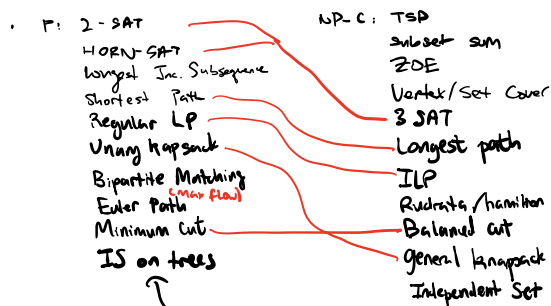 P: 2-SAT
HORN-SAT
Longest Inc. Subsequence
Shortest Path
Regular LP
Unary Kapsack
Bipartite Matching
(max flow)
Euler Path
Minimum Cut
IS on trees
NP-C: TSP
subset sum
ZOE
Vertex/Set Cover
3 SAT
Longest path
ILP
Rudrata/hamilton
Balanced cut
general knapsack
Independent Set